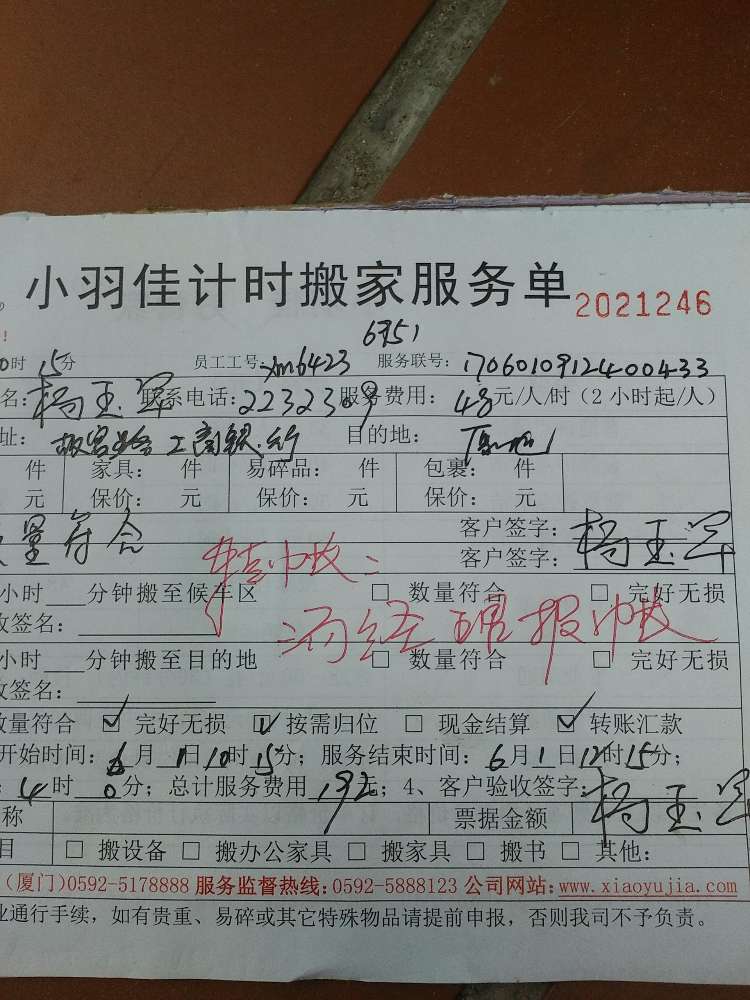 小羽佳计时搬家服务单 2021246
6751
0时 15分 员工工号: xm6423 服务联号: 1706010912400433
名: 杨玉军 联系电话: 2232309 服务费用: 48元/人/时（2小时起/人）
址: 工商银行 目的地:
件 家具: 件 易碎品: 件 包裹: 件
元 保价: 元 保价: 元 保价: 元
量符合 客户签字: 杨玉军
客户签字:
转帐:
小时___分钟搬至候车区 □ 数量符合 □ 完好无损
收签名:
经理报帐
小时___分钟搬至目的地 □ 数量符合 □ 完好无损
收签名:
数量符合 ☑ 完好无损 ☑ 按需归位 □ 现金结算 ☑ 转账汇款
开始时间: 6月1日10时15分; 服务结束时间: 6月1日12时15分;
4时0分; 总计服务费用 192元; 4、客户验收签字: 杨玉军
称 票据金额
目 □ 搬设备 □ 搬办公家具 □ 搬家具 □ 搬书 □ 其他:
（厦门)0592-5178888 服务监督热线:0592-5888123 公司网站:www.xiaoyujia.com
业通行手续，如有贵重、易碎或其它特殊物品请提前申报，否则我司不予负责。